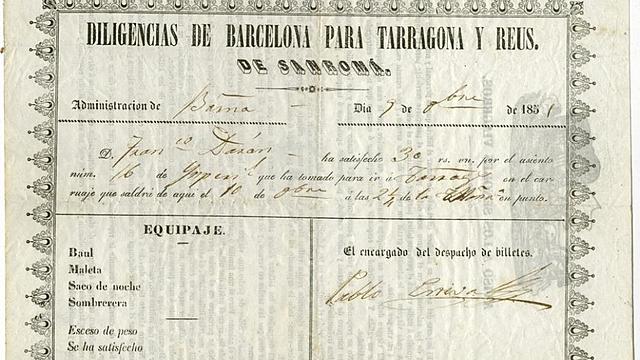 DILIGENCIAS DE BARCELONA PARA TARRAGONA Y REUS.
DE SANROMÁ.
Administracion de Barna Dia 9 de 8bre de 1851
D. Franco Durán ha satisfecho 30 rs. vn. por el asiento
núm. 6 de que ha tomado para ir á en el car-
ruaje que saldrá de aqui el 10 de 8bre á las 2 de la Mañna en punto.
EQUIPAJE.
Baul
Maleta
Saco de noche
Sombrerera
Esceso de peso
Se ha satisfecho
El encargado del despacho de billetes.
Pablo